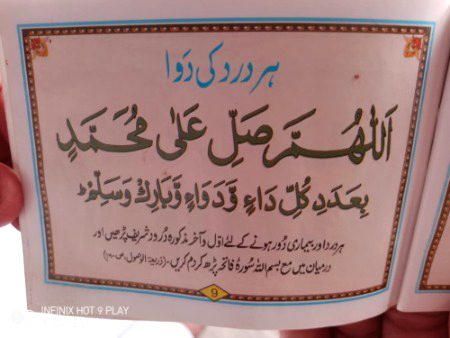 ہر درد کی دَوا
اَللّٰھُمَّ صَلِّ عَلٰی مُحَمَّدٍ
بِعَدَدِ كُلِّ دَاءٍ وَّدَوَاءٍ وَّبَارِكْ وَسَلِّمْ ؕ
ہر درد اور بیماری دُور ہونے کے لئے اوّل و آخر مذکورہ دُرود شریف پڑھیں اور
درمیان میں مع بسم اللہ سُورۃ فاتحہ پڑھ کر دم کریں۔ (ذریعۃ الوصول،ص
9
INFINIX HOT 9 PLAY